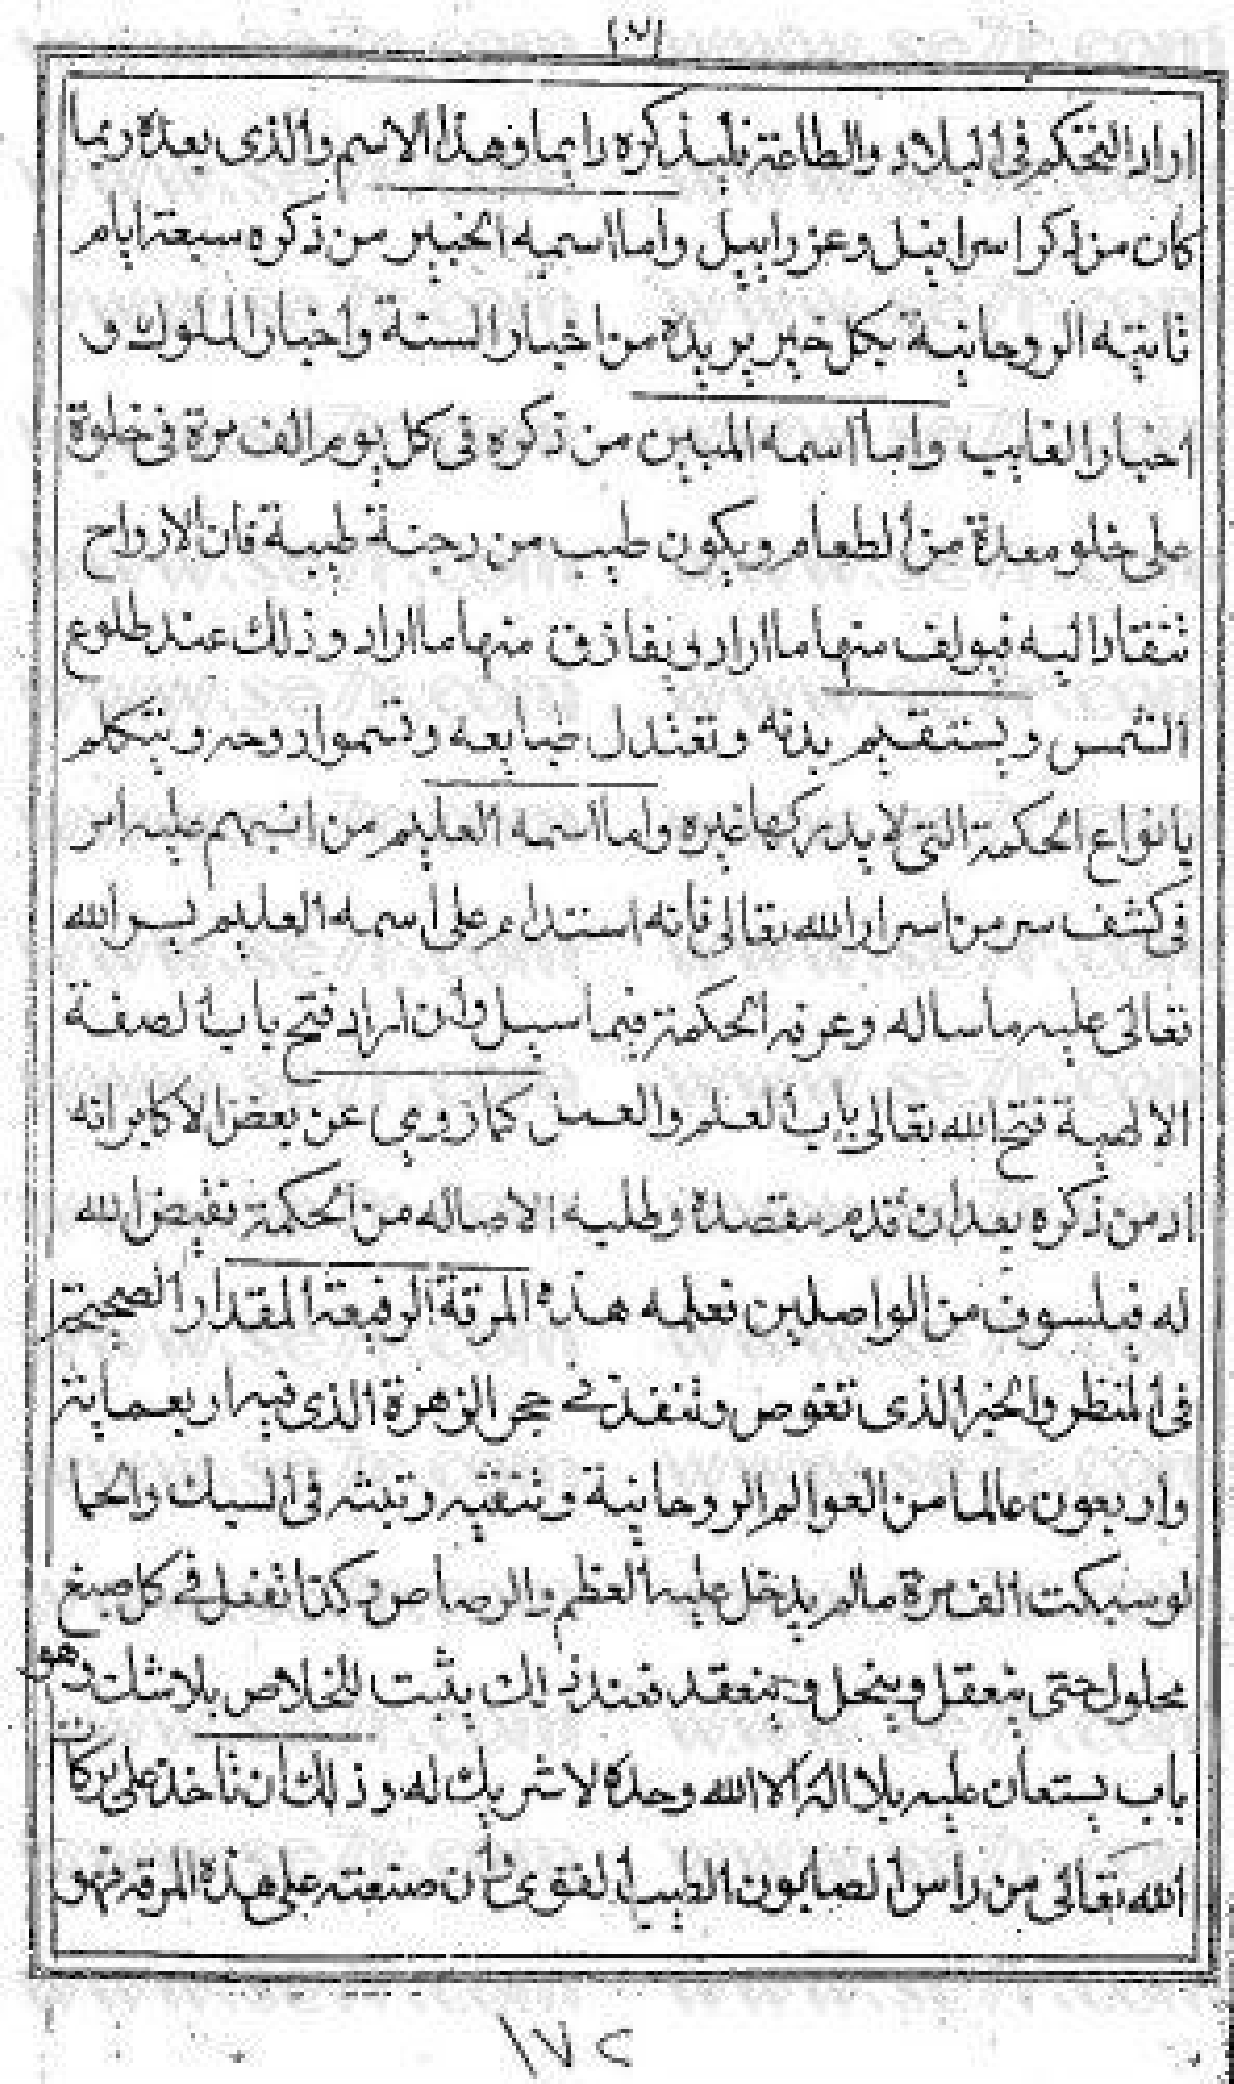 (٧)
اراد التحكم فى البلاد والطاعة فليذكره دايما وهذا الاسم والذى بعده ربما
كان من ذكر اسرافيل وعزراييل واما اسميه الخبير من ذكره سبعة ايام
تاتيه الروحانية بكل خبر يريده من اخبار السنة واخبار الملوك و
اخبار الغايب واما اسمه المبين من ذكره فى كل يوم الف مرة فى خلوة
على خلو معدة من الطعام ويكون طيب من دجنة طيبة فان الارواح
تنقاد اليه فيولف منها ما اراد ويفارق منها ما اراد وذلك عند طلوع
الشمس ويستقيم بدنه وتعتدل طبايعه وتسموا روحه ويتكلم
بانواع الحكمة التى لا يدركها غيره واما اسمه العليم من انبهم عليه امر
فى كشف سر من اسرار الله تعالى فانه استدام على اسمه العليم يسر الله
تعالى عليه ما ساله وعرفه الحكمة فيما سيل وان اراد فتح باب الصفة
الالهية فتح الله تعالى باب العلم والعمل كما روي عن بعض الاكابر انه
ادمن ذكره بعد ان قدم مقصده وطلبه الاصاله من الحكمة فقيض الله
له فيلسوف من الواصلين فعلمه هذه المرقة الرفيعة المقدار الصحيحة
فى المنظر والخبر الذى تغوص وتنفذ فى حجر الزهرة الذى فيه اربعماية
واربعون عالما من العوالم الروحانية وتنقيه وتبشه فى السبك والحما
لو سبكت الف مرة ما لم يدخل عليه العظم والرصاص وكذا تفعل فى كل صبغ
محلول حتى ينعقل وينحل وينعقد فعند ذلك يثبت للخلاص بلا شك وهو
باب يستعان عليه بلا اله الا الله وحده لا شريك له وذلك ان تاخذ على بركات
الله تعالى من راس الصابون الطيب القوى فان صنعته على هذه المرقة فهو
١٧٢